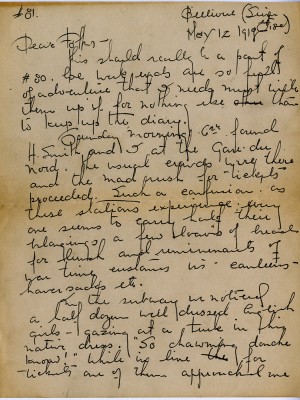 #31.
Bellevue (Seine
May 12 1919 et Oise)
Dear Folks -
This should really be a part of
#30. The week ends are so full
of adventure that I needs must write
them up if for nothing else than
to keep up the diary.
Sunday morning 6:00 found
H. Smith and I at the Gare du
Nord. The usual crowds were there
and the mad rush for tickets
proceeded. Such a confusion as
these stations experience every
one seems to carry half their
belongings a few loaves of bread
for lunch and reminants of
war time customs in canteens -
haversacks etc.
In the subway we noticed
a half dozen well dressed English
girls - gazing at a Turk in his
native dress. "So chawming donche
knows!" While in line for
tickets one of them approached me